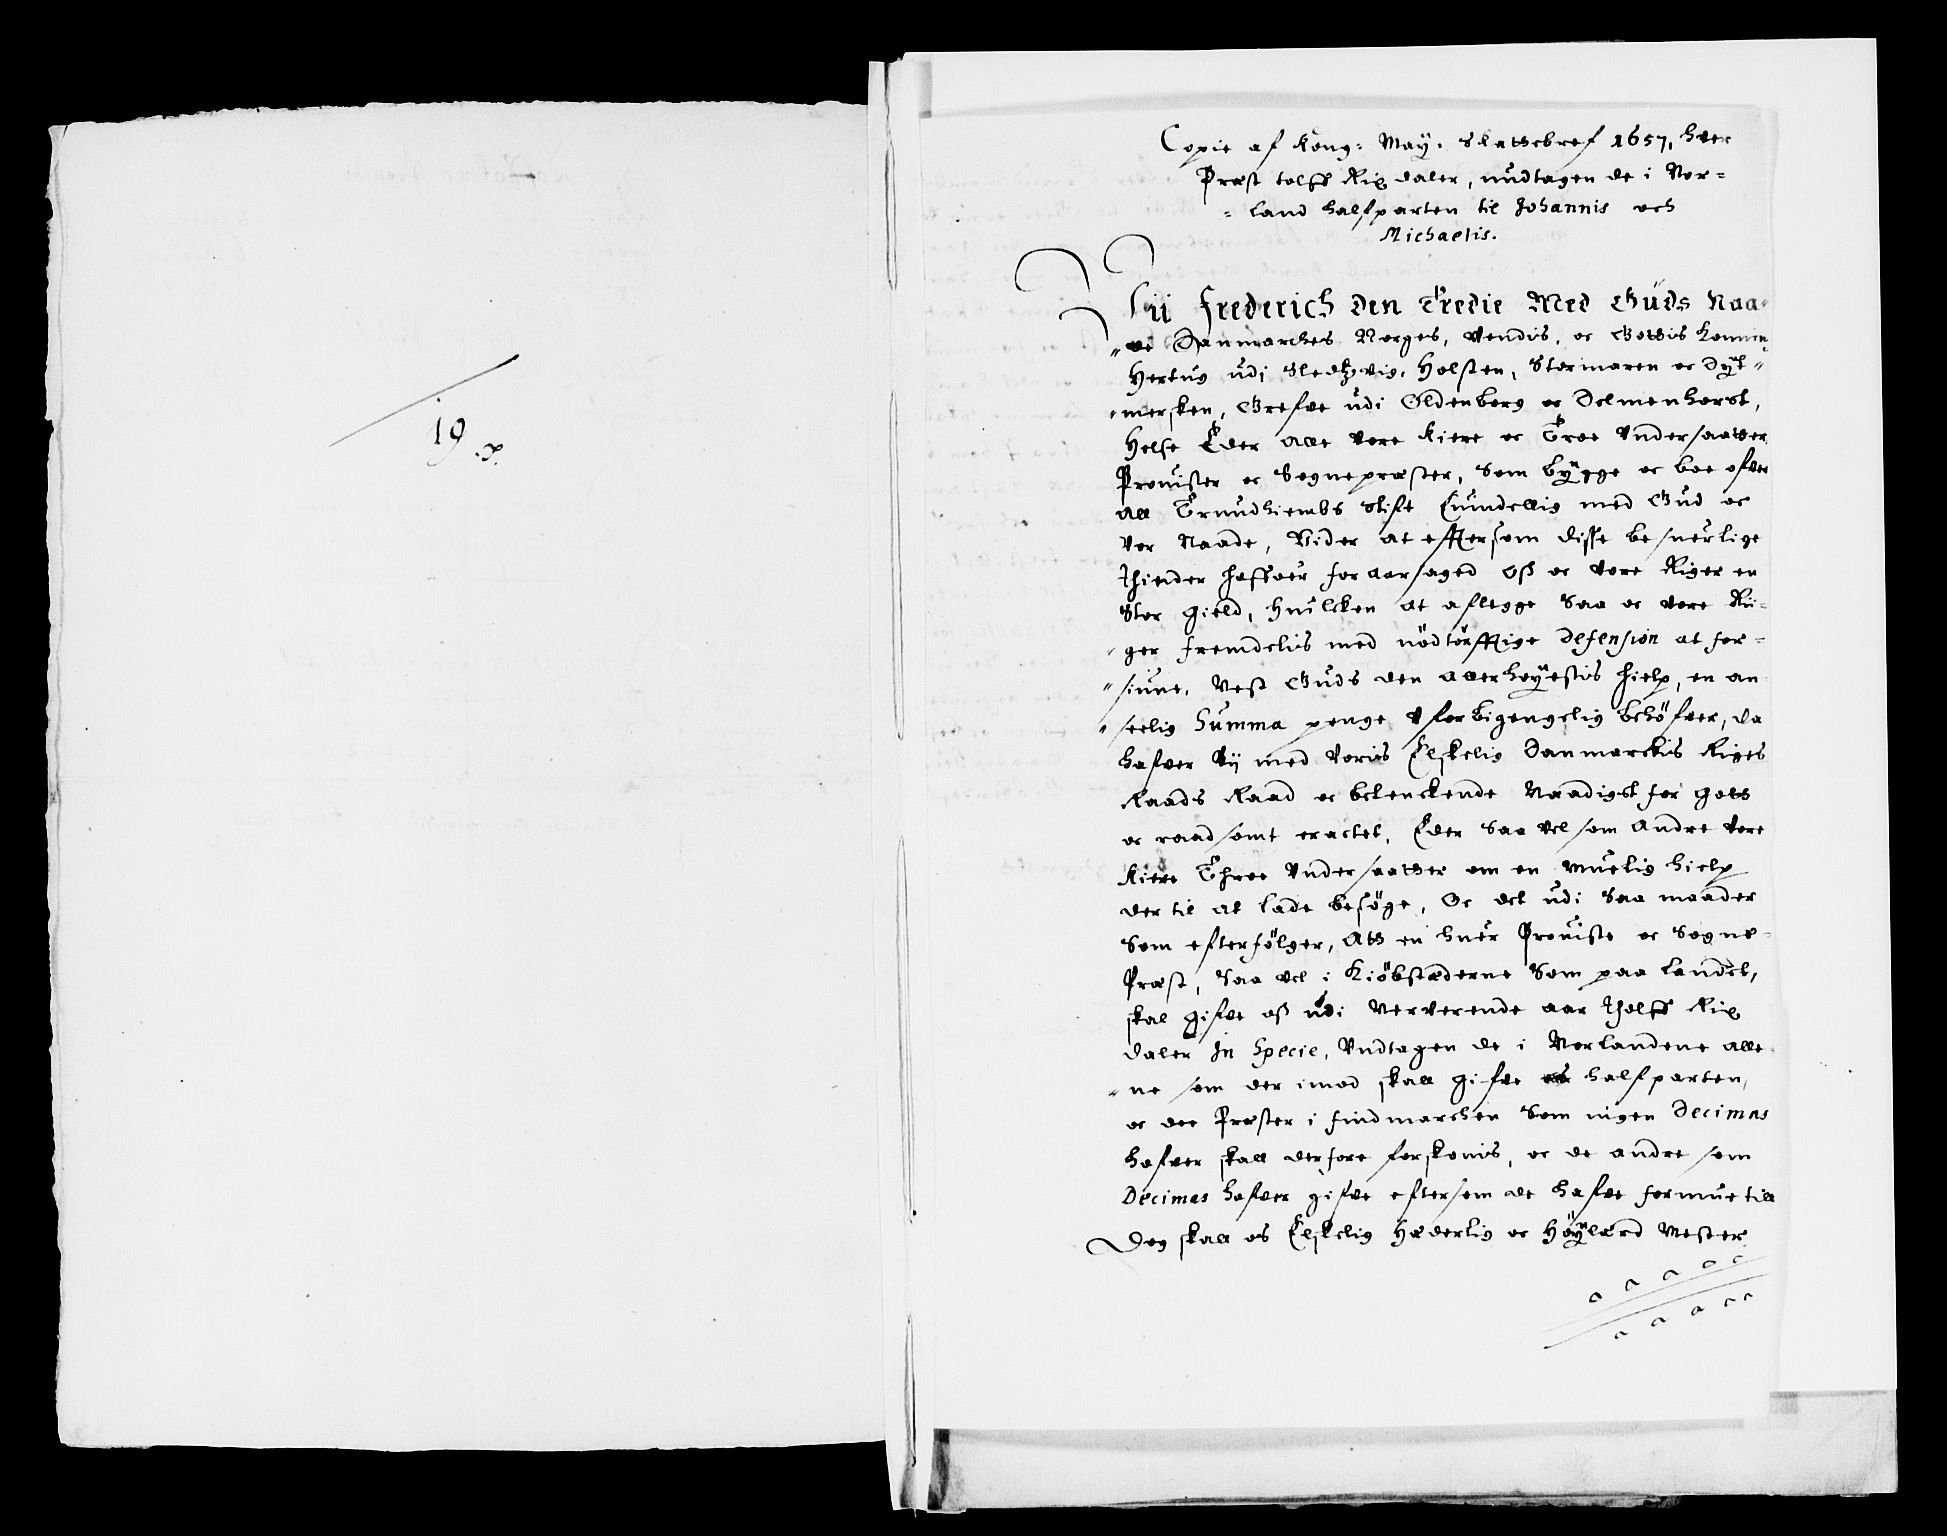 19
Copie af Kong: May: Skattebref 1657, hver
Præst tolff Rix daler, undtagen de i Nor-
- land halfparten til Johannis och
Michaelis.
Vii Frederich den Tredie Med Guds Naa-
"de Danmarckes Norges, Vendis, oc Gottis Konnin-
Hertug udi Sledzvig, Holsten, Stormaren oc Dyt-
"mersken, Grefve udi Oldenborg oc Delmenhorst,
Helse Eder Alle Vore Kiere oc Troe Undersaatter
Prouister oc Sognepræster, Som bÿgge oc boe ofver
All Trundhiembs Stift Euindelig med Gud oc
Vor Naade, Vider at effter som disse besuerlige
Thiender haffver for aarsaged oss oc Vore Riger en
Stor gield, huilcken at aflegge Saa oc Vore Ri-
"ger fremdelis med nödtörfftige Defension at for-
"siune, Nest Guds den Allerhöyestis hielp, en an
"seelig Summa penge Uforbigengelig behöfver, da
hafver Vij med Voris Elskelig Danmarckis Riges
Raads Raad oc betenckende Naadigst for gott
oc raadsomt eractet, Eder Saa vel som Andre Vore
Kiere Throe Undersaatter om en Muelig hielp
der til at lade besöge, Oc det udi Saa maader
Som efterfölger, Att en huer Prouiste oc Sogne-
Præst, Saa vel i Kiöbstæderne Som paa Landet,
skal gifve oss udi Nerverende aar Tholff Rix
daler In Specie, Undtagen de i Norlandene alle-
"ne som der imod skall gifve halfparten,
oc dee Præster i Findmarchen Som ingen Decimas
hafver skall derfore forskonis, oc de andre som
Decimas hafver gifve eftersom de hafve formue till
Dog skall os Elskelig Hæderlig oc Höÿlærd Mester